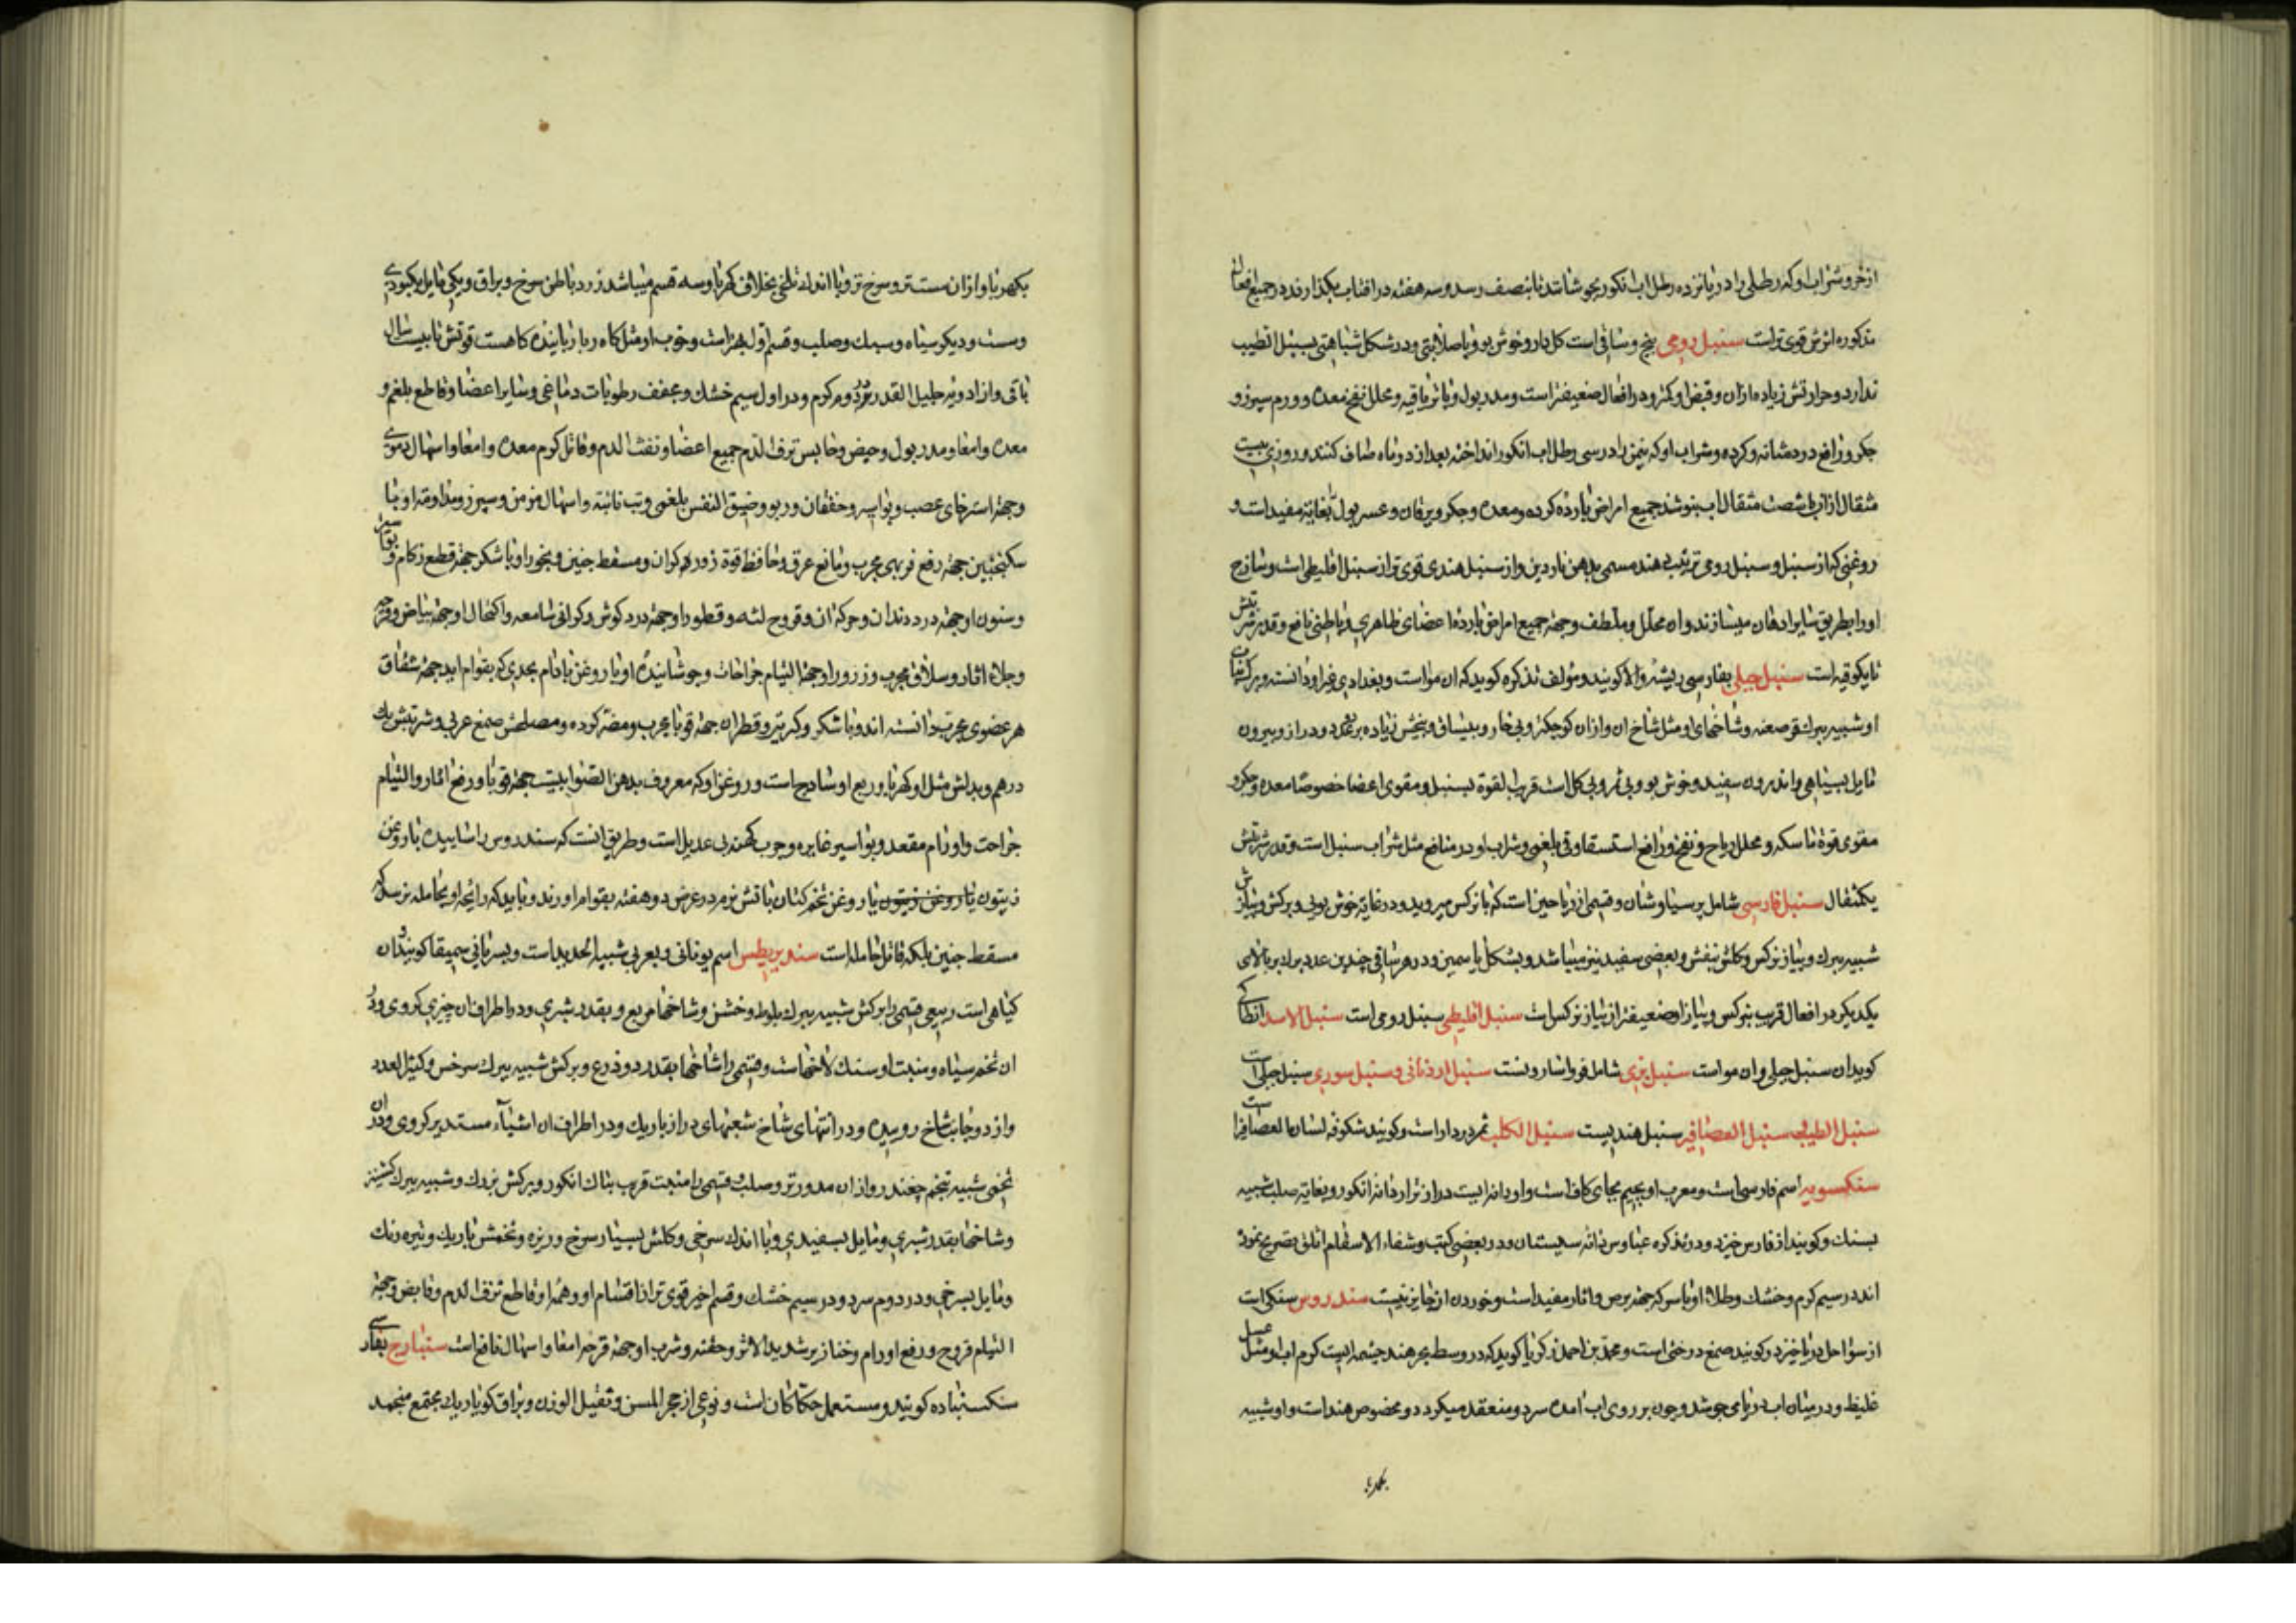 از خر و شراب او که رطلی را در پانزده رطل اب انکور بجوشانند تا بنصف رسد و سه هفته در افتاب بکذارند در جمیع افعال
مذکوره اثرش قوی تر است سنبل رومی بیخ و ساقی است کل دار و خوش بو و با صلابتی و در شکل شباهتی بسنبل الطیب
ندارد و حرارتش زیاده از ان و قبض او کمتر و در افعال ضعیفتر است و مدر بول و با تریاقیه و محلل نفخ معده و ورم سپرز و
جکر و رافع درد مثانه و کرده و شراب او که نیمن را در سی رطل اب انکور انداخته بعد از دو ماه صاف کنند و روزی بیست
مثقال از ان با شصت مثقال اب بنوشند جمیع امراض بارده کرده و معده و جکر و یرقان و عسر بول بغایة مفید است و
روغنی که از سنبل و سنبل رومی ترتیب دهند مسمی بدهن ناردین و از سنبل هندی قوی تر از سنبل اقلیطی است و ساذج
او را بطریق سایر ادهان میسازند و ان محلل و ملطف و جهة جمیع امراض بارده اعضای ظاهری و باطنی نافع و قدر شربتش
تا یکوقیه است سنبل جبلی بفارسی ریشه والا کویند و مؤلف تذکره کوید که ان مو است و بغدادی غیر او دانسته و برک نبات
او شبیه ببرک قرصعنه و شاخهای او مثل شاخ ان و از ان کوچکتر و بی خار و بیساق و بیخش زیاده بر عدد و دراز و بیرون
مایل بسیاهی و اندرون سفید و خوش بو و بی ثمر و بی کل است قریب القوة بسنبل و مقوی اعضا خصوصا معده و جکر و
مقوی قوة ماسکه و محلل ریاح و نفخ و رافع استسقا و قی بلغمی و شراب او در منافع مثل شراب سنبل است و قدر شربتش
یکمثقال سنبل فارسی شامل پرسیاوشان و قسمی از ریاحین است که با نرکس میروید و در غایة خوش بویی و برکش و پیازش
شبیه ببرک و پیاز نرکس و کلش بنفش و بعضی سفید نیز میباشد و بشکل یاسمین و در هر ساقی چندین عدد برابر بالای
یکدیکر در افعال قریب بنرکس و پیاز او ضعیفتر از پیاز نرکس است سنبل اقلیطی سنبل رومی است سنبل الاسد انطاکی
کوید ان سنبل جبلی و ان مو است سنبل بری شامل فو و اسارونست سنبل اردنانی و سنبل سوری سنبل جبلی است
سنبل الطیب سنبل العصافیر سنبل هندیست سنبل الکلب ثمر دردار است و کویند شکوفه لسان العصافیر است
سنکسبویه اسم فارسی است و معرب او بجیم بجای کاف است و او دانه ایست دراز تر از دانه انکور و بغایة صلب شبیه
بسنک و کویند از فارس خیزد و در تذکره عباوس دانه سیستان و در بعضی کتب و شفاء الاسقام اتلق تصریح نموده
اند در سیم کرم و خشک و طلاء او با سرکه جهة برص و اثار مفید است و خوردن او جایز نیست سندروس سنکی است
از سواحل دریا خیزد و کویند صمغ درختی است و محمد بن احمد زکریا کوید که در وسط بحر هند چشمه ایست کرم اب او مثل عسل
غلیظ و در میان اب دریا می جوشد و چون بر روی اب امده سرد و منعقد میکردد و مخصوص هند است و او شبیه
بکهربا
بکهربا و از ان سست تر و سرخ تر و با اندک تلخی بخلاف کهربا و سه قسم میباشد زرد باطن سرخ و براق و یکی مایل بکبودی
و سست و دیکر سیاه و سبک و صلب و قسم اول بهتر است و خوب او مثل کاه ربا رباینده کاهست قوتش تا بیست سال
باقی و از ادویه جلیل القدر در دوم کرم و در اول سیم خشک و مجفف رطوبات دماغی و سایر اعضا و قاطع بلغم و
معده و امعا و مدر بول و حیض و حابس نزف الدم جمیع اعضا و نفث الدم و قاتل کرم معده و امعا و اسهال دموی
و جهة استرخای عصب و بواسیر و خفقان و ربو و ضیق النفس بلغمی و تب نائبه و اسهال مزمن و سپرز و مداومة او با
سکنجبین جهة رفع فربهی مجرب و مانع عرق و حافظ قوة زور کران و مسقط جنین و بخور او با شکر جهة قطع زکام و بواسیر
و سنون او جهة درد دندان و حرکة ان و قروح لثه و قطور او جهة درد کوش و کرانی سامعه و اکتحال او جهة بیاض و قرحه
و جلاء اثار و سلاق مجرب و ذرور او جهة التیام جراحات و جوشانیده او با روغن بادام بحدی که بقوام اید جهة شقاق
هر عضوی مجرب دانسته اند و با شکر و کبریت و قطران جهة قوبا مجرب و مضر کرده و مصلحش صمغ عربی و شربتش یک
درهم و بدلش مثل او کهربا و ربع او سادج است و روغن او که معروف بدهن الصوابیست جهة قوبا و رفع اثار و التیام
جراحت و اورام مقعد و بواسیر غایره و جرب کهنه بی عدیل است و طریق انست که سندروس را ساییده با روغن
زیتون یا روغن زیتون یا روغن تخم کتان با تش نرم در عرض دو هفته بقوام اورند و باید که رائحه او بحامله نرسد که
مسقط جنین بلکه قاتل حامله است سندیریطس اسم یونانی و بعربی شبیه الحدید است و بسریانی سمیقا کویند و ان
کیاهی است ربیعی قسمی را برکش شبیه ببرک بلوط و خشن و شاخها مربع و بقدر شبری و در اطراف ان چیزی کروی و در
ان تخم سیاه و منبت او سنک لاخهاست و قسمی را شاخها بقدر دو ذرع و برکش شبیه ببرک سرخس و کثیر العدد
و از دو جانب شاخ روییده و در انتهای شاخ شعبهای دراز باریک و در اطراف ان اشیاء مستدیر کروی و در ان
تخمی شبیه بتخم چغندر و از ان مدور تر و صلب و قسمی را منبت قریب بتاک انکور و برکش نزدک و شبیه ببرک کشنیز
و شاخها بقدر شبری و مایل بسفیدی و با اندک سرخی و کلش بسیار سرخ و ریزه و تخمش باریک و تیره رنک
و مایل بسرخی و در دوم سرد و در سیم خشک و قسم اخیر قوی تر از اقسام او و همه او قاطع نزف الدم و قابض و جهة
التیام قروح و رفع اورام و خنازیر شدید الاثر و حقنه و شرب او جهة قرحه امعا و اسهال نافع است سنبادج بفارسی
سنک سنباده کویند و مستعمل حکاکان است و نوعی از حجر المسن و ثقیل الوزن و براق کویا ریک مجتمع منجمد